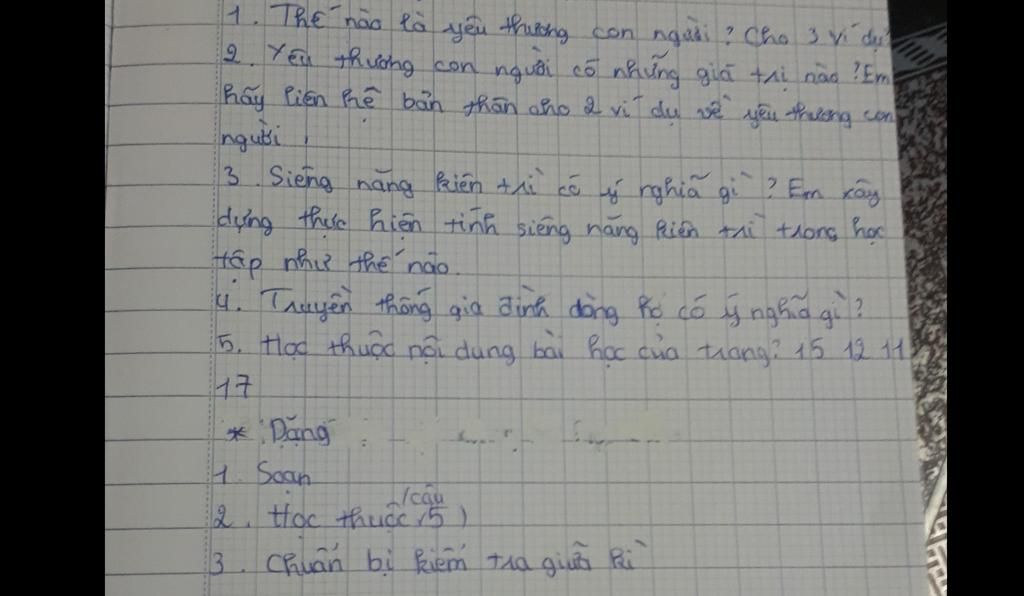 1. Thế nào là yêu thương con người? Cho 3 ví dụ
2. Yêu thương con người có những giá trị nào? Em
hãy liên hệ bản thân cho 2 ví dụ về yêu thương con
người.
3. Siêng năng kiên trì có ý nghĩa gì? Em xây
dựng thực hiện tính siêng năng kiên trì trong học
tập như thế nào.
4. Truyền thống gia đình dòng họ có ý nghĩa gì?
5. Học thuộc nội dung bài học của trang? 15 12 11
17
* Dặng
1. Soạn
2. Học thuộc (5 /câu)
3. Chuẩn bị kiểm tra giữa kì